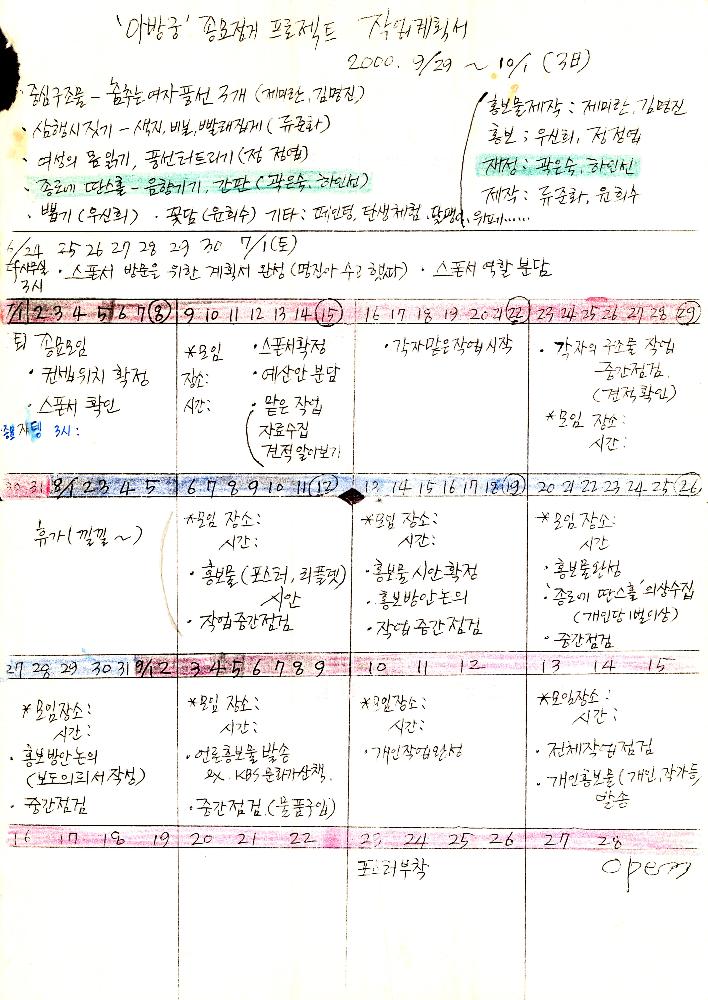 '아방궁' 종묘점거 프로젝트 작업계획서
2000. 9/29 ~ 10/1 (3日)
· 중심구조물 - 춤추는 여자 풍선 3개 (제미란, 김명진)
· 삼행시 짓기 - 색지, 비보, 빨래집게 (류준화)
· 여성의 몸 읽기, 풍선 터트리기 (정정엽)
· 종로에 딴스홀 - 음향기기, 간판 (곽은숙, 하인선)
· 뽑기 (우신희) · 꽃담 (윤희수) 기타 : 페인팅, 탄생체험, 달팽이,
홍보물제작 : 제미란, 김명진
홍보 : 우신희, 정정엽
재정 : 곽은숙, 하인선
제작 : 류준화, 윤희수
6/24 25 26 27 28 29 30 7/1 (토)
3시 · 스폰서 방문을 위한 계획서 완성 (명진아 수고했따) · 스폰서 역할 분담
7/1 2 3 4 5 6 7 8 9 10 11 12 13 14 15 16 17 18 19 20 21 22 23 24 25 26 27 28 29
종묘모임
· 컨셉위치 확정
· 스폰서 확인
3시 :
*모임
장소:
시간:
· 스폰서확정
· 예산안 분담
· 맡은 작업
자료수집
견적 알아보기
· 각자맡은작업시작
· 각자의 구조물 작업
중간점검
(견적확인)
*모임 장소:
시간:
30 31 8/1 2 3 4 5 6 7 8 9 10 11 12 13 14 15 16 17 18 19 20 21 22 23 24 25 26
휴가 (낄낄~)
*모임 장소:
시간:
· 홍보물 (포스터, 리플렛)
시안
· 작업중간점검
*모임 장소:
시간:
· 홍보물시안확정
· 홍보방안논의
· 작업중간점검
*모임 장소:
시간
· 홍보물완성
· '종로에 딴스홀' 의상수집
(개인당 1벌이상)
· 중간점검
27 28 29 30 31 9/1 2 3 4 5 6 7 8 9 10 11 12 13 14 15
*모임장소:
시간:
· 홍보방안논의
(보도의뢰서 작성)
· 중간점검
*모임 장소:
시간:
· 언론홍보물 발송
ex. KBS 문화가산책
· 중간점검 (물품구입)
*모임장소:
시간:
· 개인작업완성
*모임장소:
시간:
· 전체작업점검
· 개인홍보물 (개인, 작가등)
발송
16 17 18 19 20 21 22 23 24 25 26 27 28
포스터부착
open